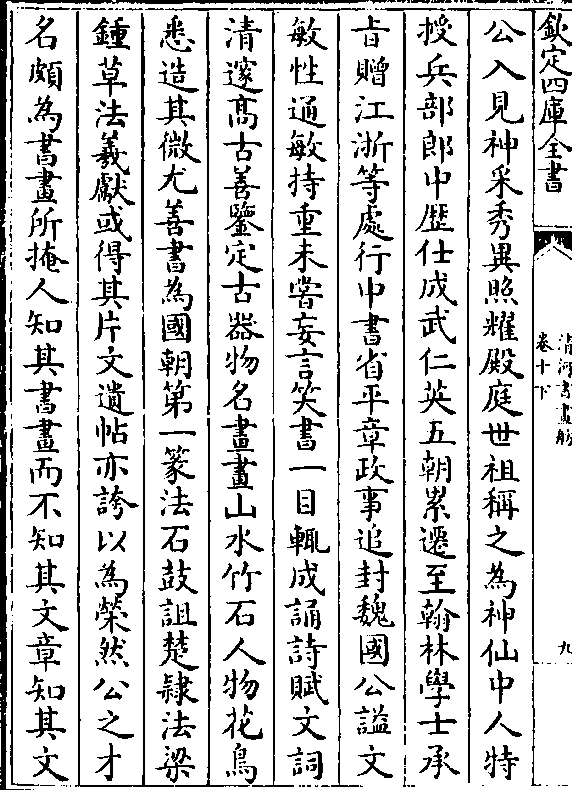 欽定四庫全書
清河書畫舫
卷十下
九
公入見神采秀異照耀殿庭世祖稱之為神仙中人特
授兵部郎中歴仕成武仁英五朝累遷至翰林學士承
㫖贈江浙等處行中書省平章政事追封魏國公謚文
敏性通敏持重未嘗妄言笑書一目輒成誦詩賦文詞
清邃髙古善鑒定古器物名畫畫山水竹石人物花鳥
悉造其微尤善書為國朝第一篆法石鼓詛楚隷法梁
鍾草法羲獻或得其片文遺帖亦誇以為榮然公之才
名頗為書畫所掩人知其書畫而不知其文章知其文